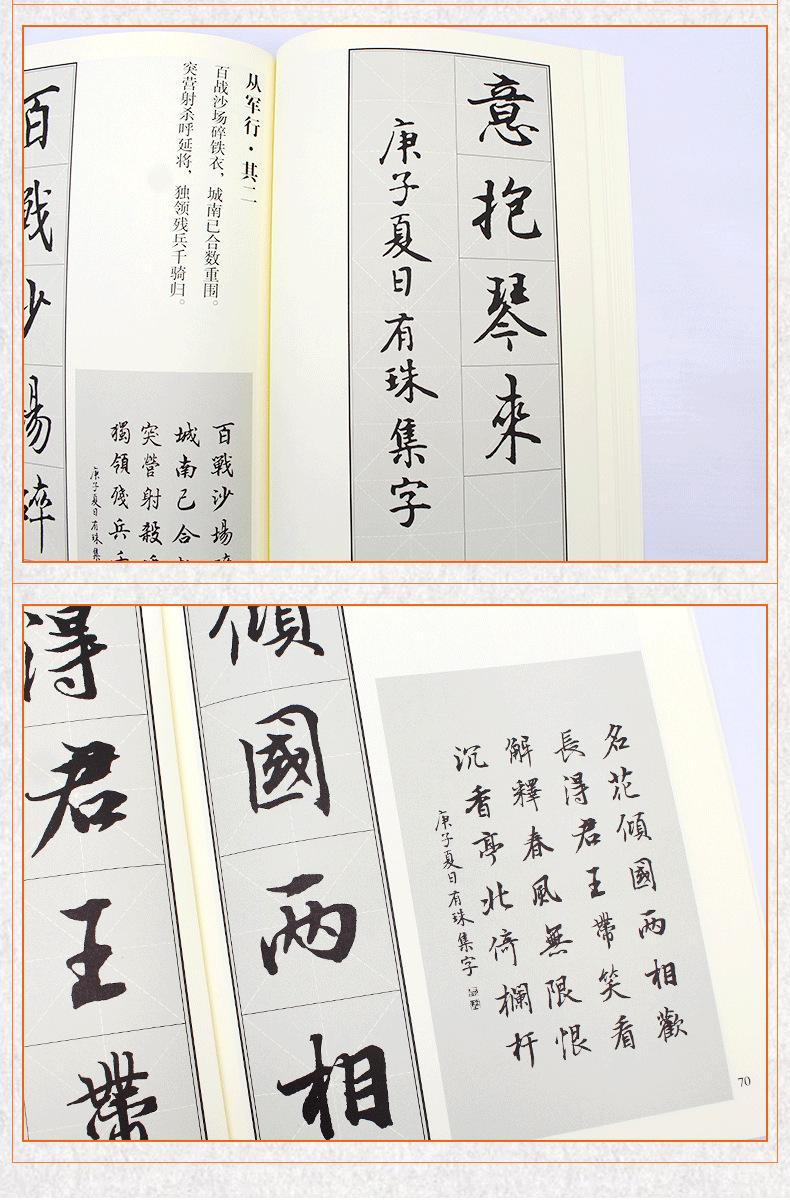 意抱琴來
庚子夏日有珠集字
从军行·其二
百战沙场碎铁衣，城南已合数重围。
突营射杀呼延将，独领残兵千骑归。
百戰沙場碎
城南已合
突營射殺
獨領殘兵千
庚子夏日有珠集
百戰沙場碎
名花傾國兩相歡
長得君王帶笑看
解釋春風無限恨
沉香亭北倚欄杆
庚子夏日有珠集字
70
傾國兩相
得君王帶